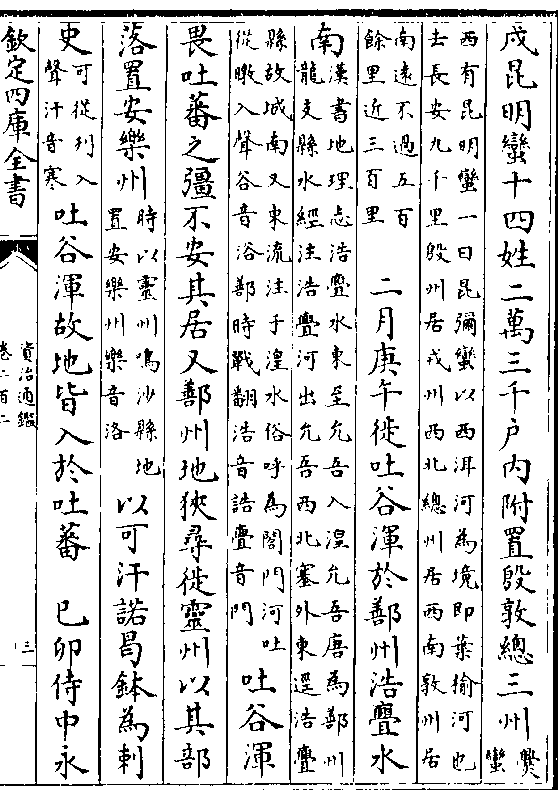 戍昆明蠻十四姓二萬三千户内附置殷敦總三州爨蠻
西有昆明蠻一曰昆彌蠻以西洱河為境即葉榆河也
去長安九千里殷州居戎州西北總州居西南敦州居
南遠不過五百
餘里近三百里
二月庚午徙吐谷渾於鄯州浩亹水
南
漢書地理志浩亹水東至允吾入湟允吾唐為鄯州
龍支縣水經注浩亹河出允吾西北塞外東逕浩亹
縣故城南又東流注于湟水俗呼為閤門河吐
從暾入聲谷音浴鄯時戰翻浩音誥亹音門
吐谷渾
畏吐蕃之彊不安其居又鄯州地狹尋徙靈州以其部
落置安樂州
時以靈州鳴沙縣地
置安樂州樂音洛
以可汗諾曷鉢為刺
史
可從刋入
聲汗音寒
吐谷渾故地皆入於吐蕃
己卯侍中永
欽定四庫全書
資治通鑑
卷二百二
三